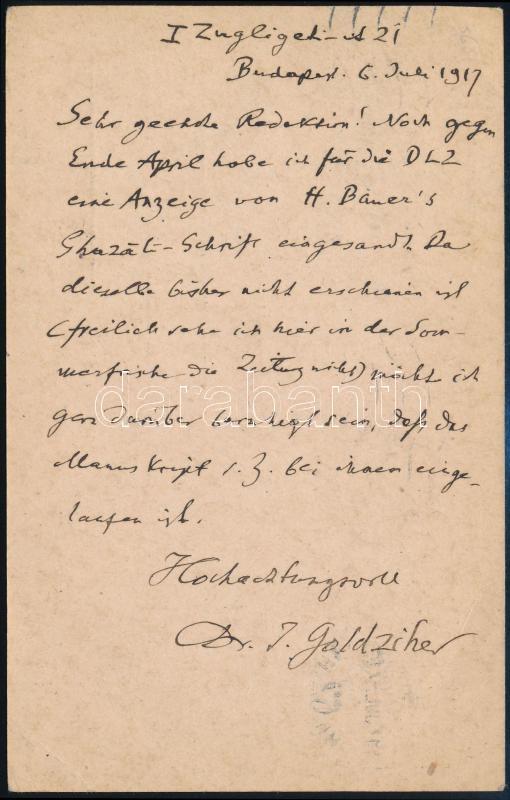 I Zugligeti-ut 21
Budapest. 6. Juli 1917
Sehr geehrte Redaktion! Noch gegen
Ende April habe ich für die DLZ
eine Anzeige von H. Bauer's
Ghazâlî-Schrift eingesandt. Da
dieselbe bisher nicht erschienen ist
(freilich sehe ich hier in der Som-
merfrische die Zeitung nicht) möcht ich
gern darüber beruhigt sein, daß das
Manuskript s. Z. bei ihnen einge-
laufen ist.
Hochachtungsvoll
Dr. I. Goldziher
darabanth